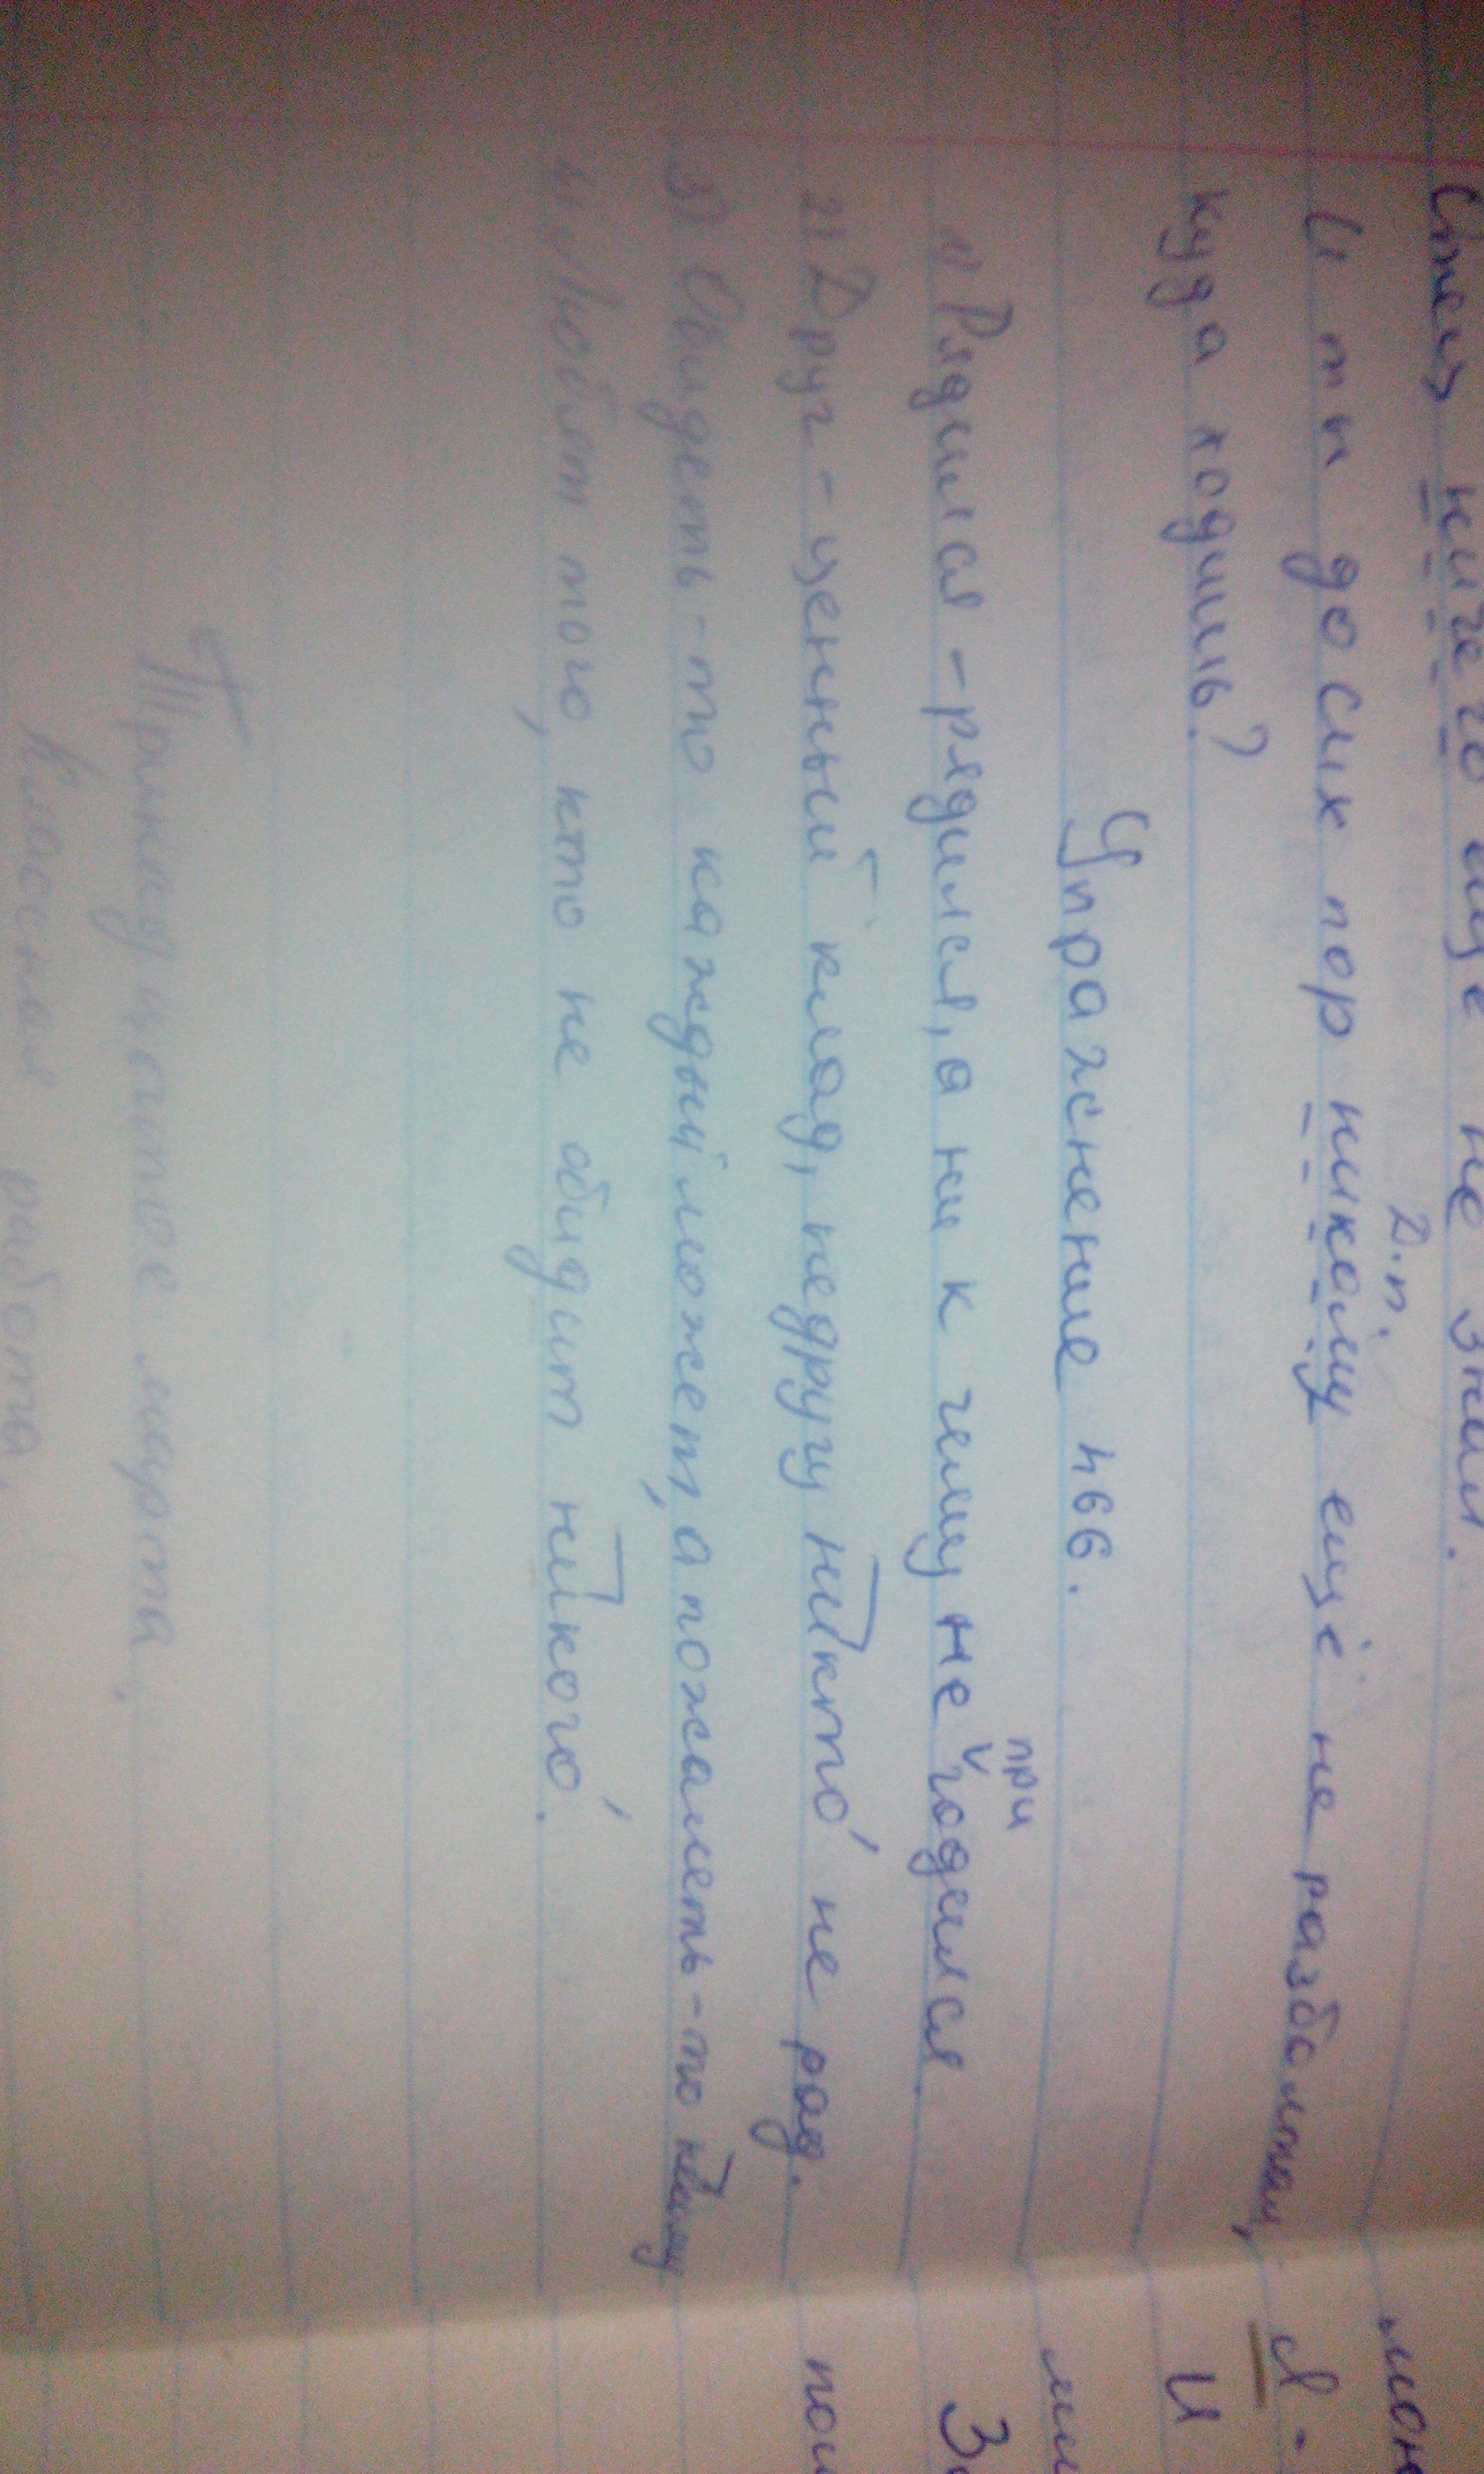 ничего ещё не знал.
Д.п.
И ты до сих пор никому ещё не разболтал,
куда ходишь?
Упражнение 466.
1) Рядился-рядился, а ни к чему не годился.
при
2) Друг - ценный клад, недругу никто не рад.
3) Обидеть-то каждый может, а пожалеть-то некому
4) Любят того, кто не обидит никого.
Тринадцатое марта.
Классная работа.